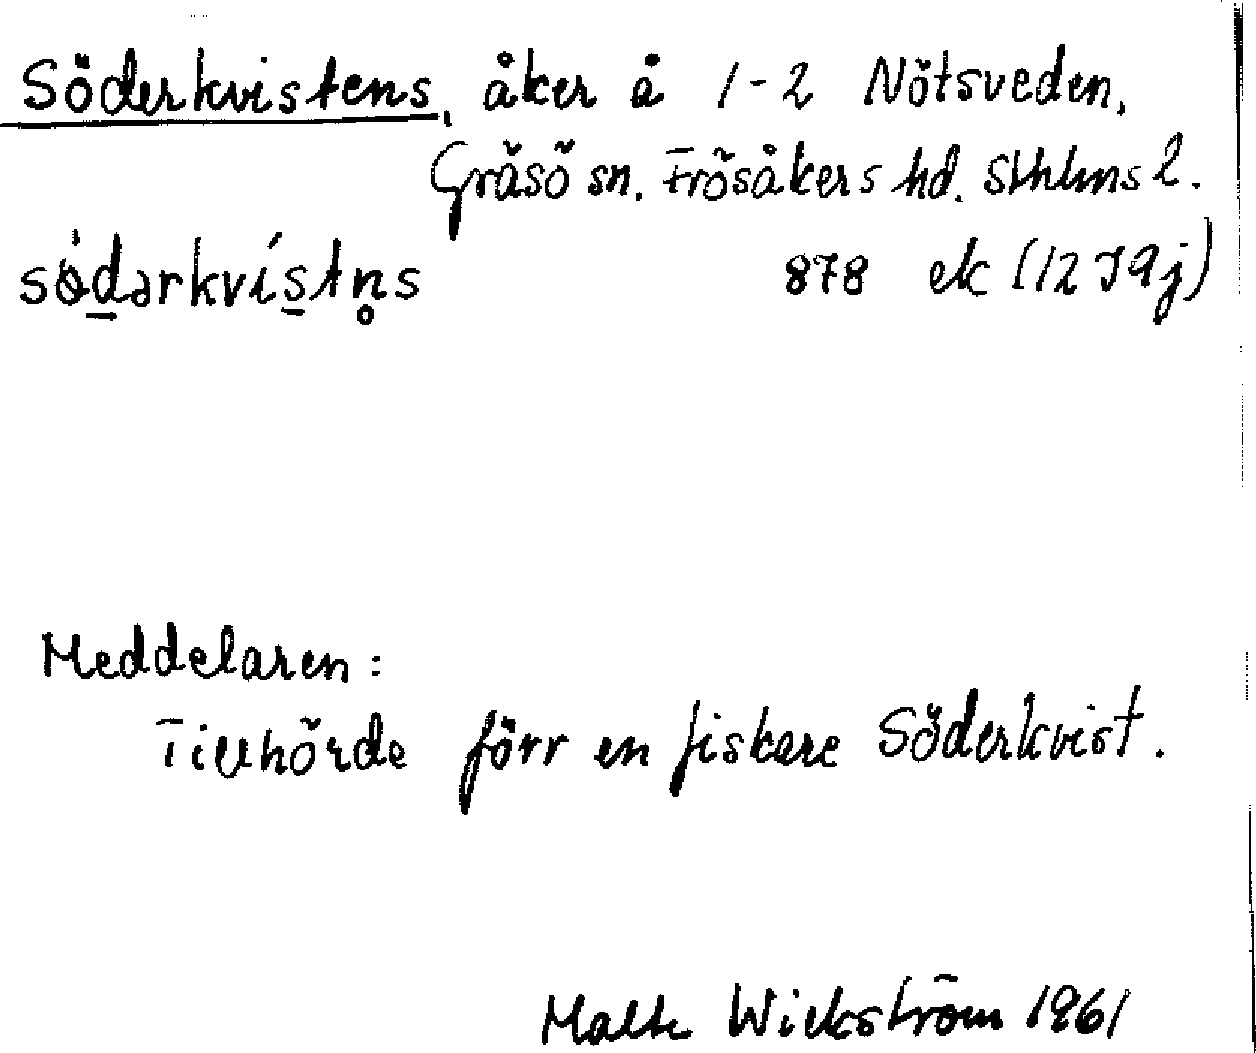 Söderkvistens, åker å 1-2 Nötsveden,
Gräsö sn. Frösåkers hd. Sthlms l.
södərkvistn̥s 878 ek (12 I 9j)
Meddelaren:
Tillhörde förr en fiskare Söderkvist.
Malte Wickström 1961